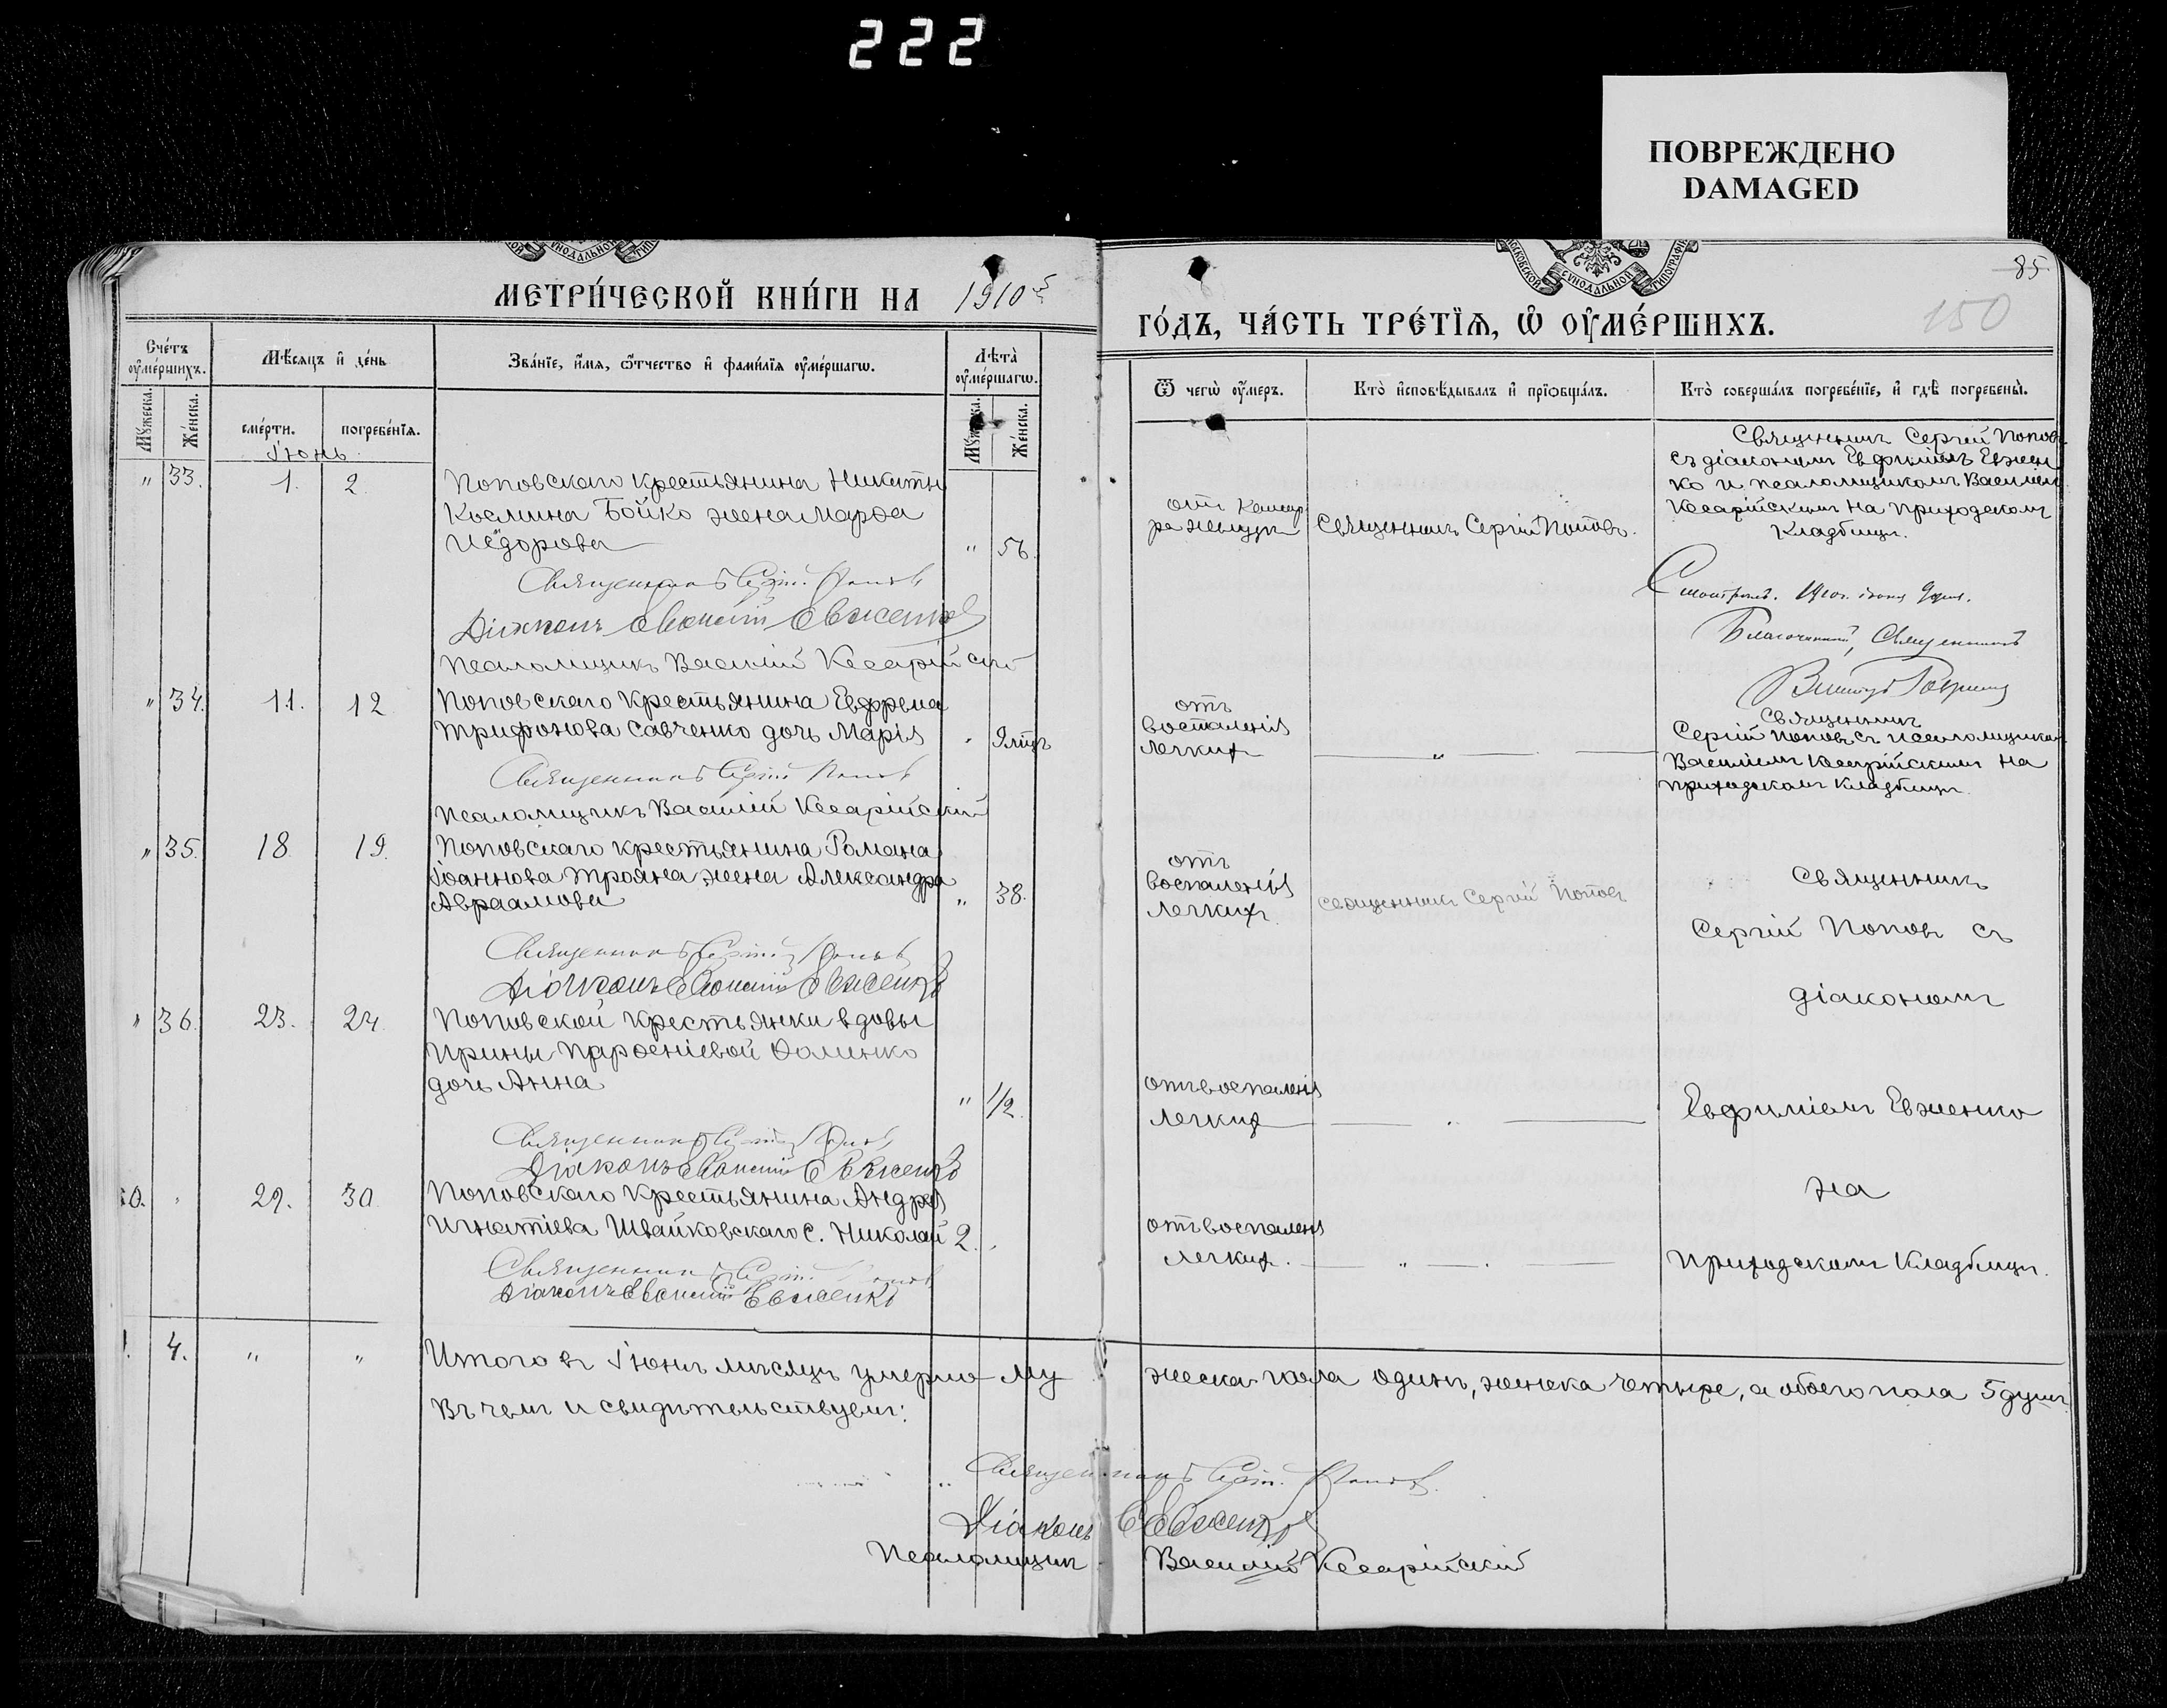 222
ПОВРЕЖДЕНО
DAMAGED
МЕТРИ́ЧЕСКОЙ КНИ́ГИ НА 1910й
85
150
ГО́ДЪ, ЧА́СТЬ ТРЕ́ТЇѦ, Ѡ҆ ОУ҆МЕ́РШИХЪ.
Сче́тъ оу҆ме́ршихъ.
Мꙋ́жеска.
Же́нска.
Мѣ́сѧцъ и҆ де́нь
сме́рти.
погребе́нїѧ.
Зва́нїе, и҆́мѧ, ѻ҆́тчество и҆ фами́лїѧ оу҆ме́ршагѡ.
Лѣта̀ оу҆ме́ршагѡ.
Мꙋ́жеска.
Же́нска.
Ѿ чегѡ̀ оу҆́меръ.
Кто̀ и҆сповѣ́дывалъ и҆ прїѻбща́лъ.
Кто̀ соверша́лъ погребе́нїе, и҆ гдѣ̀ погребены̀.
Іюнь
" 33. 1. 2.
Поповскаго крестьянина Никиты
Космина Бойко жена Марѳа
Ѳедорова " 56.
Священникъ Сергій Поповъ
Діаконъ Евѳимій Евженко
Псаломщикъ Василій Кесарійскій
желудка
Священникъ Сергій Поповъ.
Священникъ Сергій Поповъ
съ діакономъ Евфиміемъ Евжен
ко и псаломщикомъ Василіемъ
Кесарійскимъ на приходскомъ
кладбищѣ.
Смотрѣлъ. 1910 г. іюня 9 дня.
Благочинный, Священникъ
" 34. 11. 12
Поповскаго крестьянина Евфрема
Трифонова Савченко дочь Марія " 9 мцъ
Священникъ Сергій Поповъ
Псаломщикъ Василій Кесарійскій
отъ
воспаленія
легкихъ "
Священникъ
Сергій Поповъ съ псаломщикомъ
Василіемъ Кесарійскимъ на
приходскомъ кладбищѣ.
" 35. 18 19.
Поповскаго крестьянина Романа
Іоаннова Трояна жена Александра
Авраамова " 38.
Священникъ Сергій Поповъ
Діаконъ Евѳимій Евженко
отъ
воспаленія
легкихъ.
Священникъ Сергій Поповъ
Священникъ
Сергій Поповъ съ
діакономъ
Евфиміемъ Евженко
на
приходскомъ кладбищѣ.
" 36. 23. 24.
Поповской крестьянки вдовы
Ирины Парѳеніевой Доменко
дочь Анна " 1/2.
Священникъ Сергій Поповъ
Діаконъ Евѳимій Евженко
отъ воспаленія
легкихъ "
30. " 29. 30.
Поповскаго крестьянина Андрея
Игнатіева Швайковскаго с. Николай 2. "
Священникъ Сергій Поповъ
Діаконъ Евѳимій Евженко
отъ воспаленія
легкихъ. "
1. 4. " "
Итого въ Іюнѣ мѣсяцѣ умерло мужеска пола одинъ, женска четыре, а обоего пола 5 душъ.
Въ чемъ и свидѣтельствуемъ:
Священникъ Сергій Поповъ.
Діаконъ Е Евженко
Псаломщикъ Василій Кесарійскій